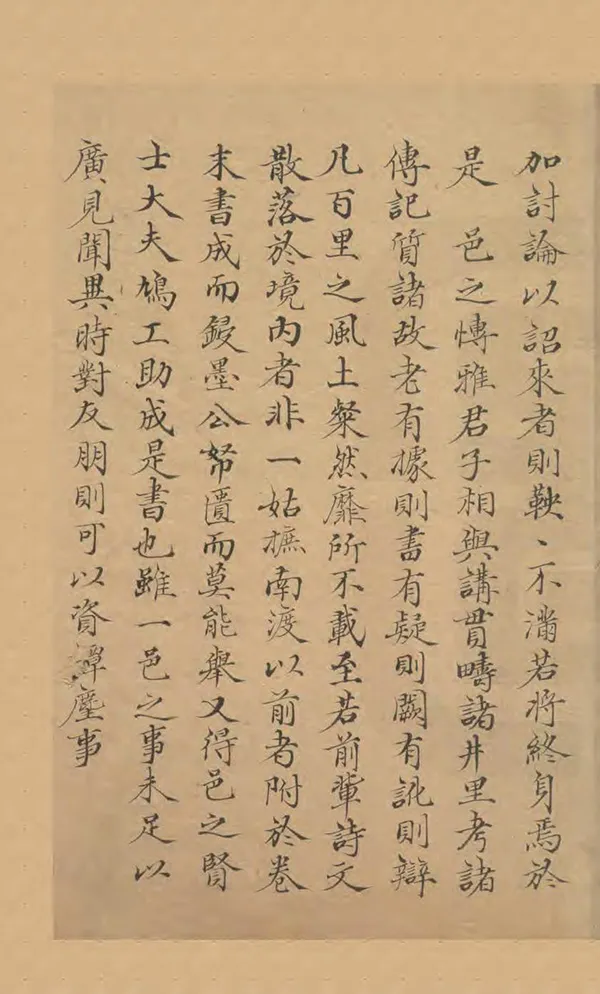 加討論以詔來者則鞅、不滿若將終身焉於
是　邑之愽雅君子相與講貫疇諸井里考諸
傳記質諸故老有據則書有疑則闕有訛則辯
凡百里之風土粲然靡所不載至若前輩詩文
散落於境內者非一姑摭南渡以前者附於卷
末書成而鋟墨公帑匱而莫能舉又得邑之賢
士大夫鳩工助成是書也雖一邑之事未足以
廣見聞異時對友朋則可以資譚麈事